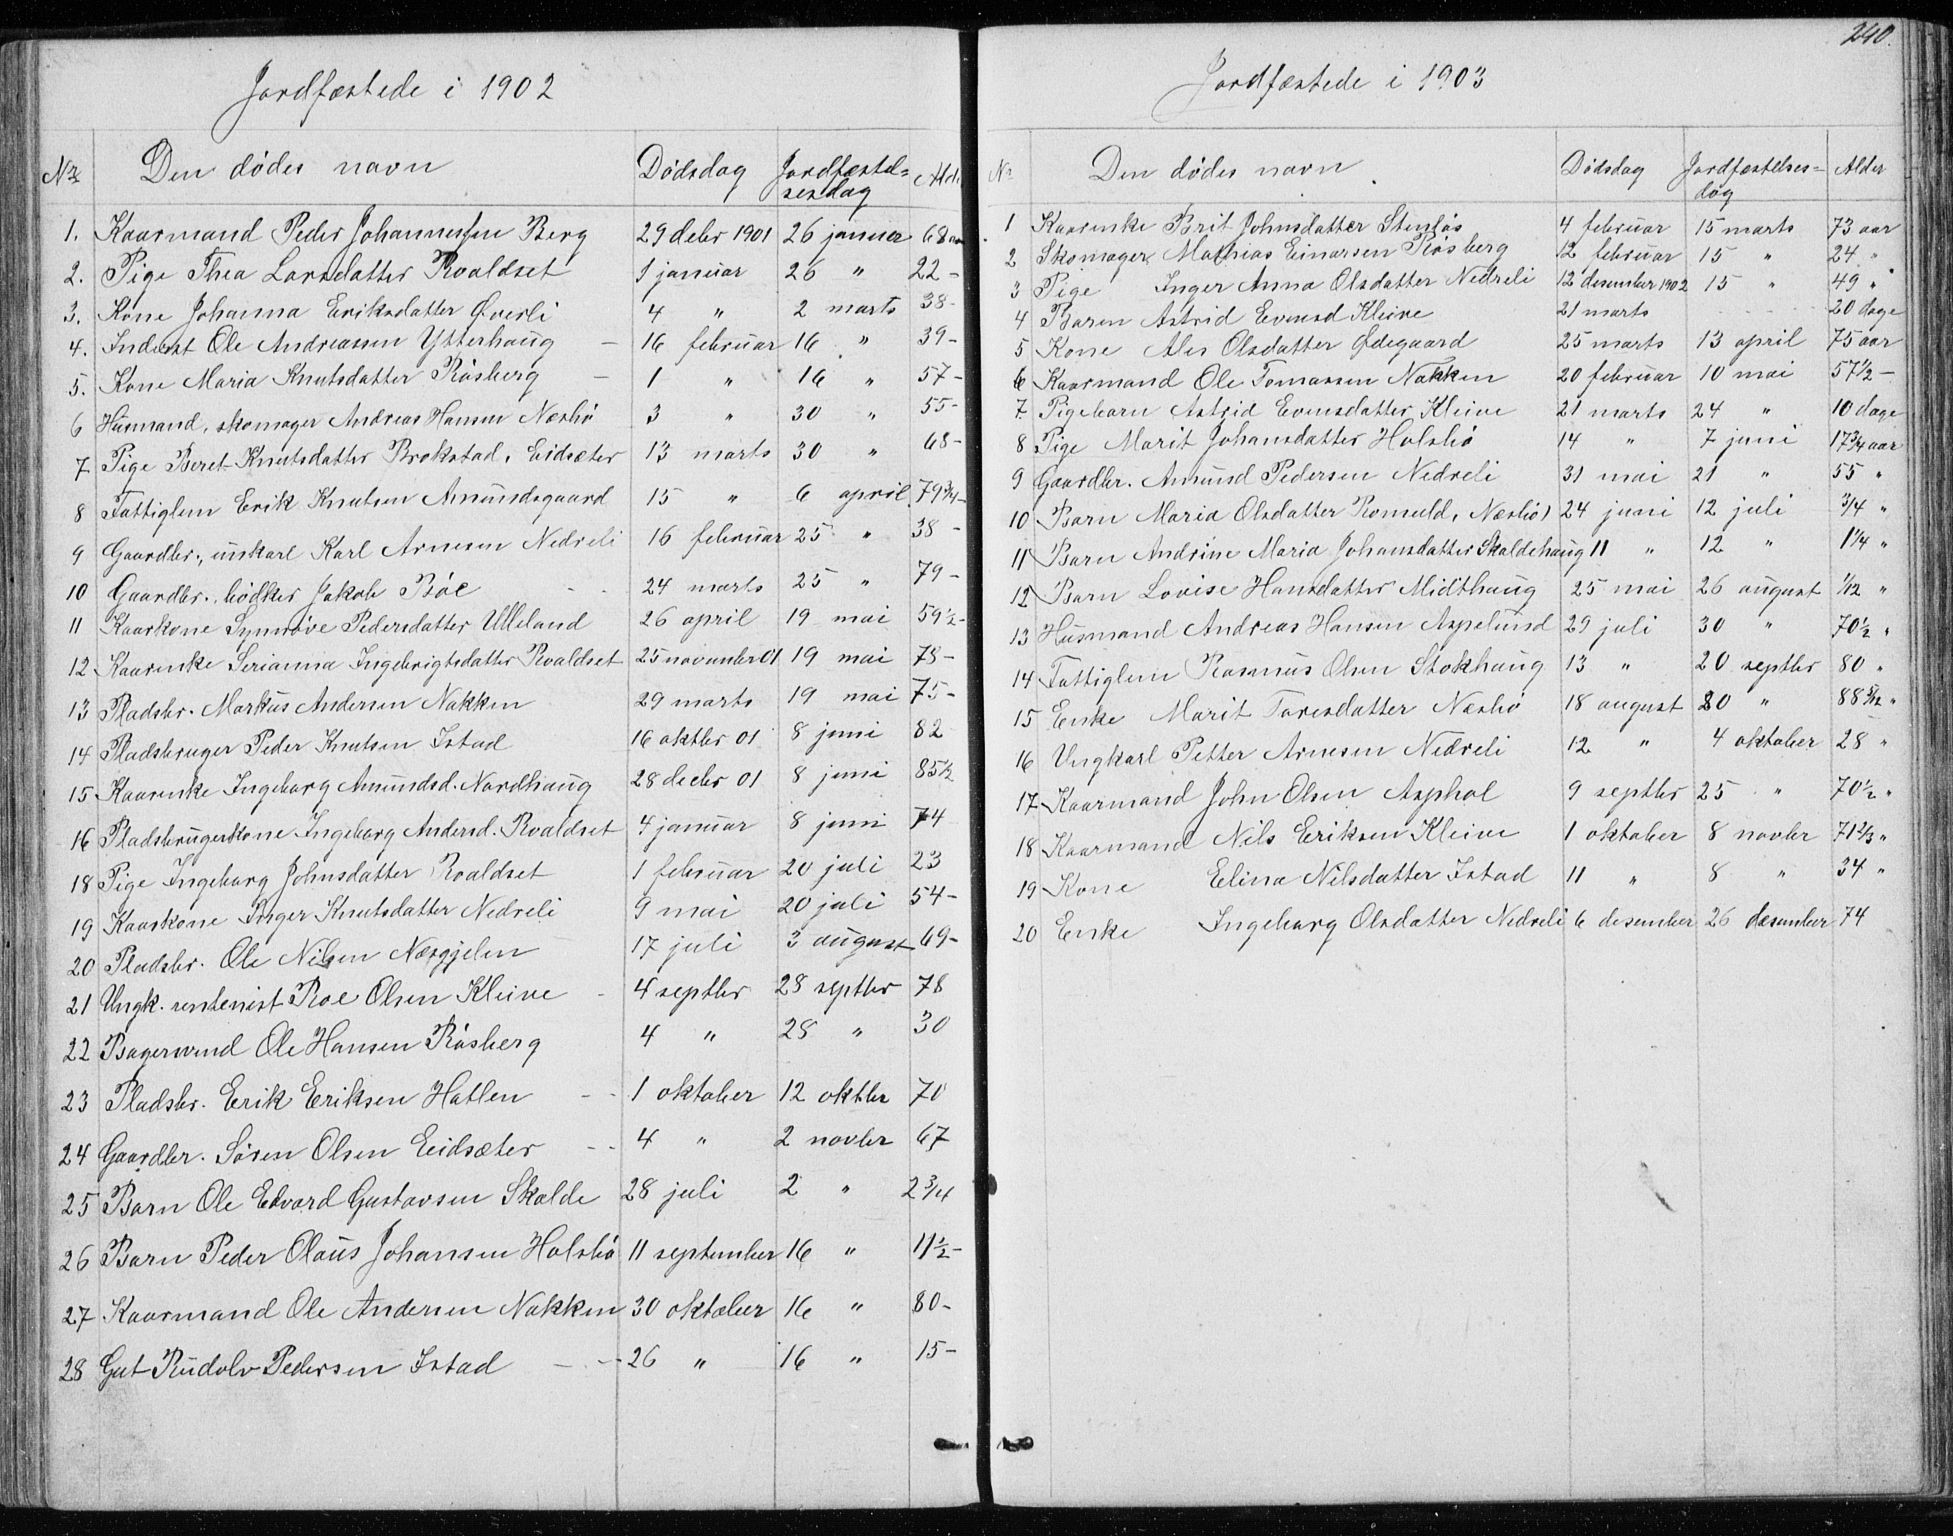 Jordfæstede i 1902
No Den dødes navn Dødsdag Jordfæstel= sesdag Alder
1. Kaarmand Peder Johannessen Berg 29 decbr 1901 26 januar 68 aar
2. Pige Thea Larsdatter Roaldset 1 januar 26 " 22 -
3. Kone Johanna Eriksdatter Øverli 4 " 2 marts 38 -
4. Inderst Ole Andreassen Ytterhaug - 16 februar 16 " 39 -
5. Kone Maria Knutsdatter Røsberg - 1 " 16 " 57 -
6 Husmand, skomager Andreas Hansen Nesbø 3 " 30 " 55 -
7 Pige Beret Knutsdatter Brokstad, Eidsæter 13 marts 30 " 68 -
8 Fattiglem Erik Knutsen Amundsgaard 15 " 6 april 79 3/4 -
9 Gaardbr., unkarl Karl Arnesen Nedreli 16 februar 25 " 38 -
10 Gaardbr., bødker Jakob Bøe - - 24 marts 25 " 79 -
11 Kaarkone Synnøve Pedersdatter Ulleland 26 april 19 mai 59 1/2 -
12 Kaarenke Serianna Ingebrigtsdatter Roaldset 25 november 01 19 mai 78 -
13 Pladsbr. Markus Andersen Nakken 29 marts 19 mai 75 -
14 Pladsbruger Peder Knutsen Istad 16 oktbr 01 8 juni 82
15 Kaarenke Ingeborg Amundsd. Nordhaug 28 decbr 01 8 juni 85 1/2
16 Pladsbrugerkone Ingeborg Andersd. Roaldset 4 januar 8 juni 74
18 Pige Ingeborg Johnsdatter Roaldset 1 februar 20 juli 23
19 Kaarkone Inger Knutsdatter Nedreli 9 mai 20 juli 54 -
20 Pladsbr. Ole Nilsen Næsgjelen 17 juli 3 august 69 -
21 Ungk. rentenist Roe Olsen Kleive - 4 septbr 28 septbr 78
22 Bagersvend Ole Hansen Røsberg 4 " 28 " 30
23 Pladsbr. Erik Eriksen Hatlen - - 1 oktober 12 oktbr 70
24 Gaardbr. Søren Olsen Eidsæter - - 4 " 2 novbr 67
25 Barn Ole Edvard Gustavsen Skalde 28 juli 2 " 2 3/4
26 Barn Peder Olaus Johansen Holsbø 11 september 16 " 11 1/2 -
27 Kaarmand Ole Andersen Nakken 30 oktober 16 " 80 -
28 Gut Rudolv Pedersen Istad - - 26 " 16 " 15 -
240.
Jordfæstede i 1903
No Den dødes navn Dødsdag Jordfæstelses= dag Alder
1 Kaarenke Brit Johnsdatter Stenløs 4 februar 15 marts 73 aar
2 Skomager Mathias Einarsen Røsberg 12 februar 15 " 24 "
3 Pige Inger Anna Olsdatter Nedreli 12 desember 1902 15 " 49 "
4 Baren Astrid Evensd Kleive 21 marts 20 dage
5 Kone Ales Olsdatter Ødegaard 25 marts 13 april 75 aar
6 Kaarmand Ole Tomassen Nakken 20 februar 10 mai 57 1/2 -
7 Pigebarn Astrid Evensdatter Kleive 21 marts 24 " 10 dage
8 Pige Marit Johansdatter Holsbø 14 " 7 juni 17 3/4 aar
9 Gaardbr. Amund Pedersen Nedreli 31 mai 21 " 55 "
10 Barn Maria Olsdatter Romuld, Næsbø 24 juni 12 juli 3/4 "
11 Barn Andrine Maria Johansdatter Skaldehaug 11 " 12 " 1 1/4 "
12 Barn Lovise Hansdatter Midthaug 25 mai 26 august 1/12 "
13 Husmand Andreas Hansen Aspelund 29 juli 30 " 70 1/2 "
14 Fattiglem Rasmus Olsen Stokhaug 13 " 20 septbr 80 "
15 Enke Marit Toresdatter Næsbø 18 august 20 " 88 5/12 "
16 Ungkarl Petter Arnesen Nedreli 12 " 4 oktober 28 "
17 Kaarmand John Olsen Asphol 9 septbr 25 " 70 1/2 "
18 Kaarmand Nils Eriksen Kleive 1 oktober 8 novbr 71 2/3 "
19 Kone Elina Nilsdatter Istad 11 " 8 " 34 "
20 Enke Ingeborg Olsdatter Nedreli 6 desember 26 desember 74